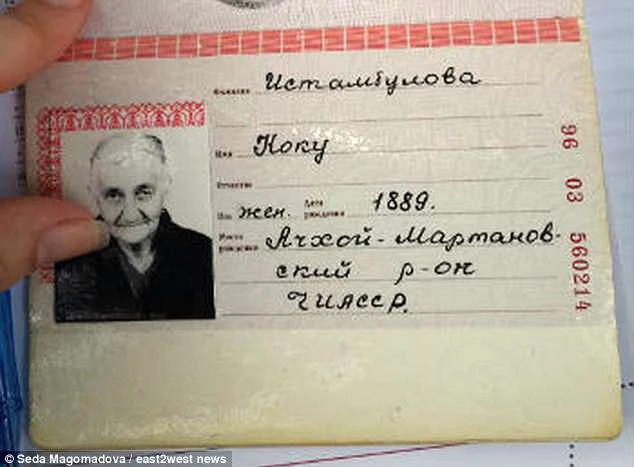 Фамилия Истамбулова
Имя Коку
Отчество
Пол жен. Дата рождения 1889.
Место рождения Ачхой-Мартанов-
ский р-он
ЧИАССР.
96 03 560214
© Seda Magomadova / east2west news